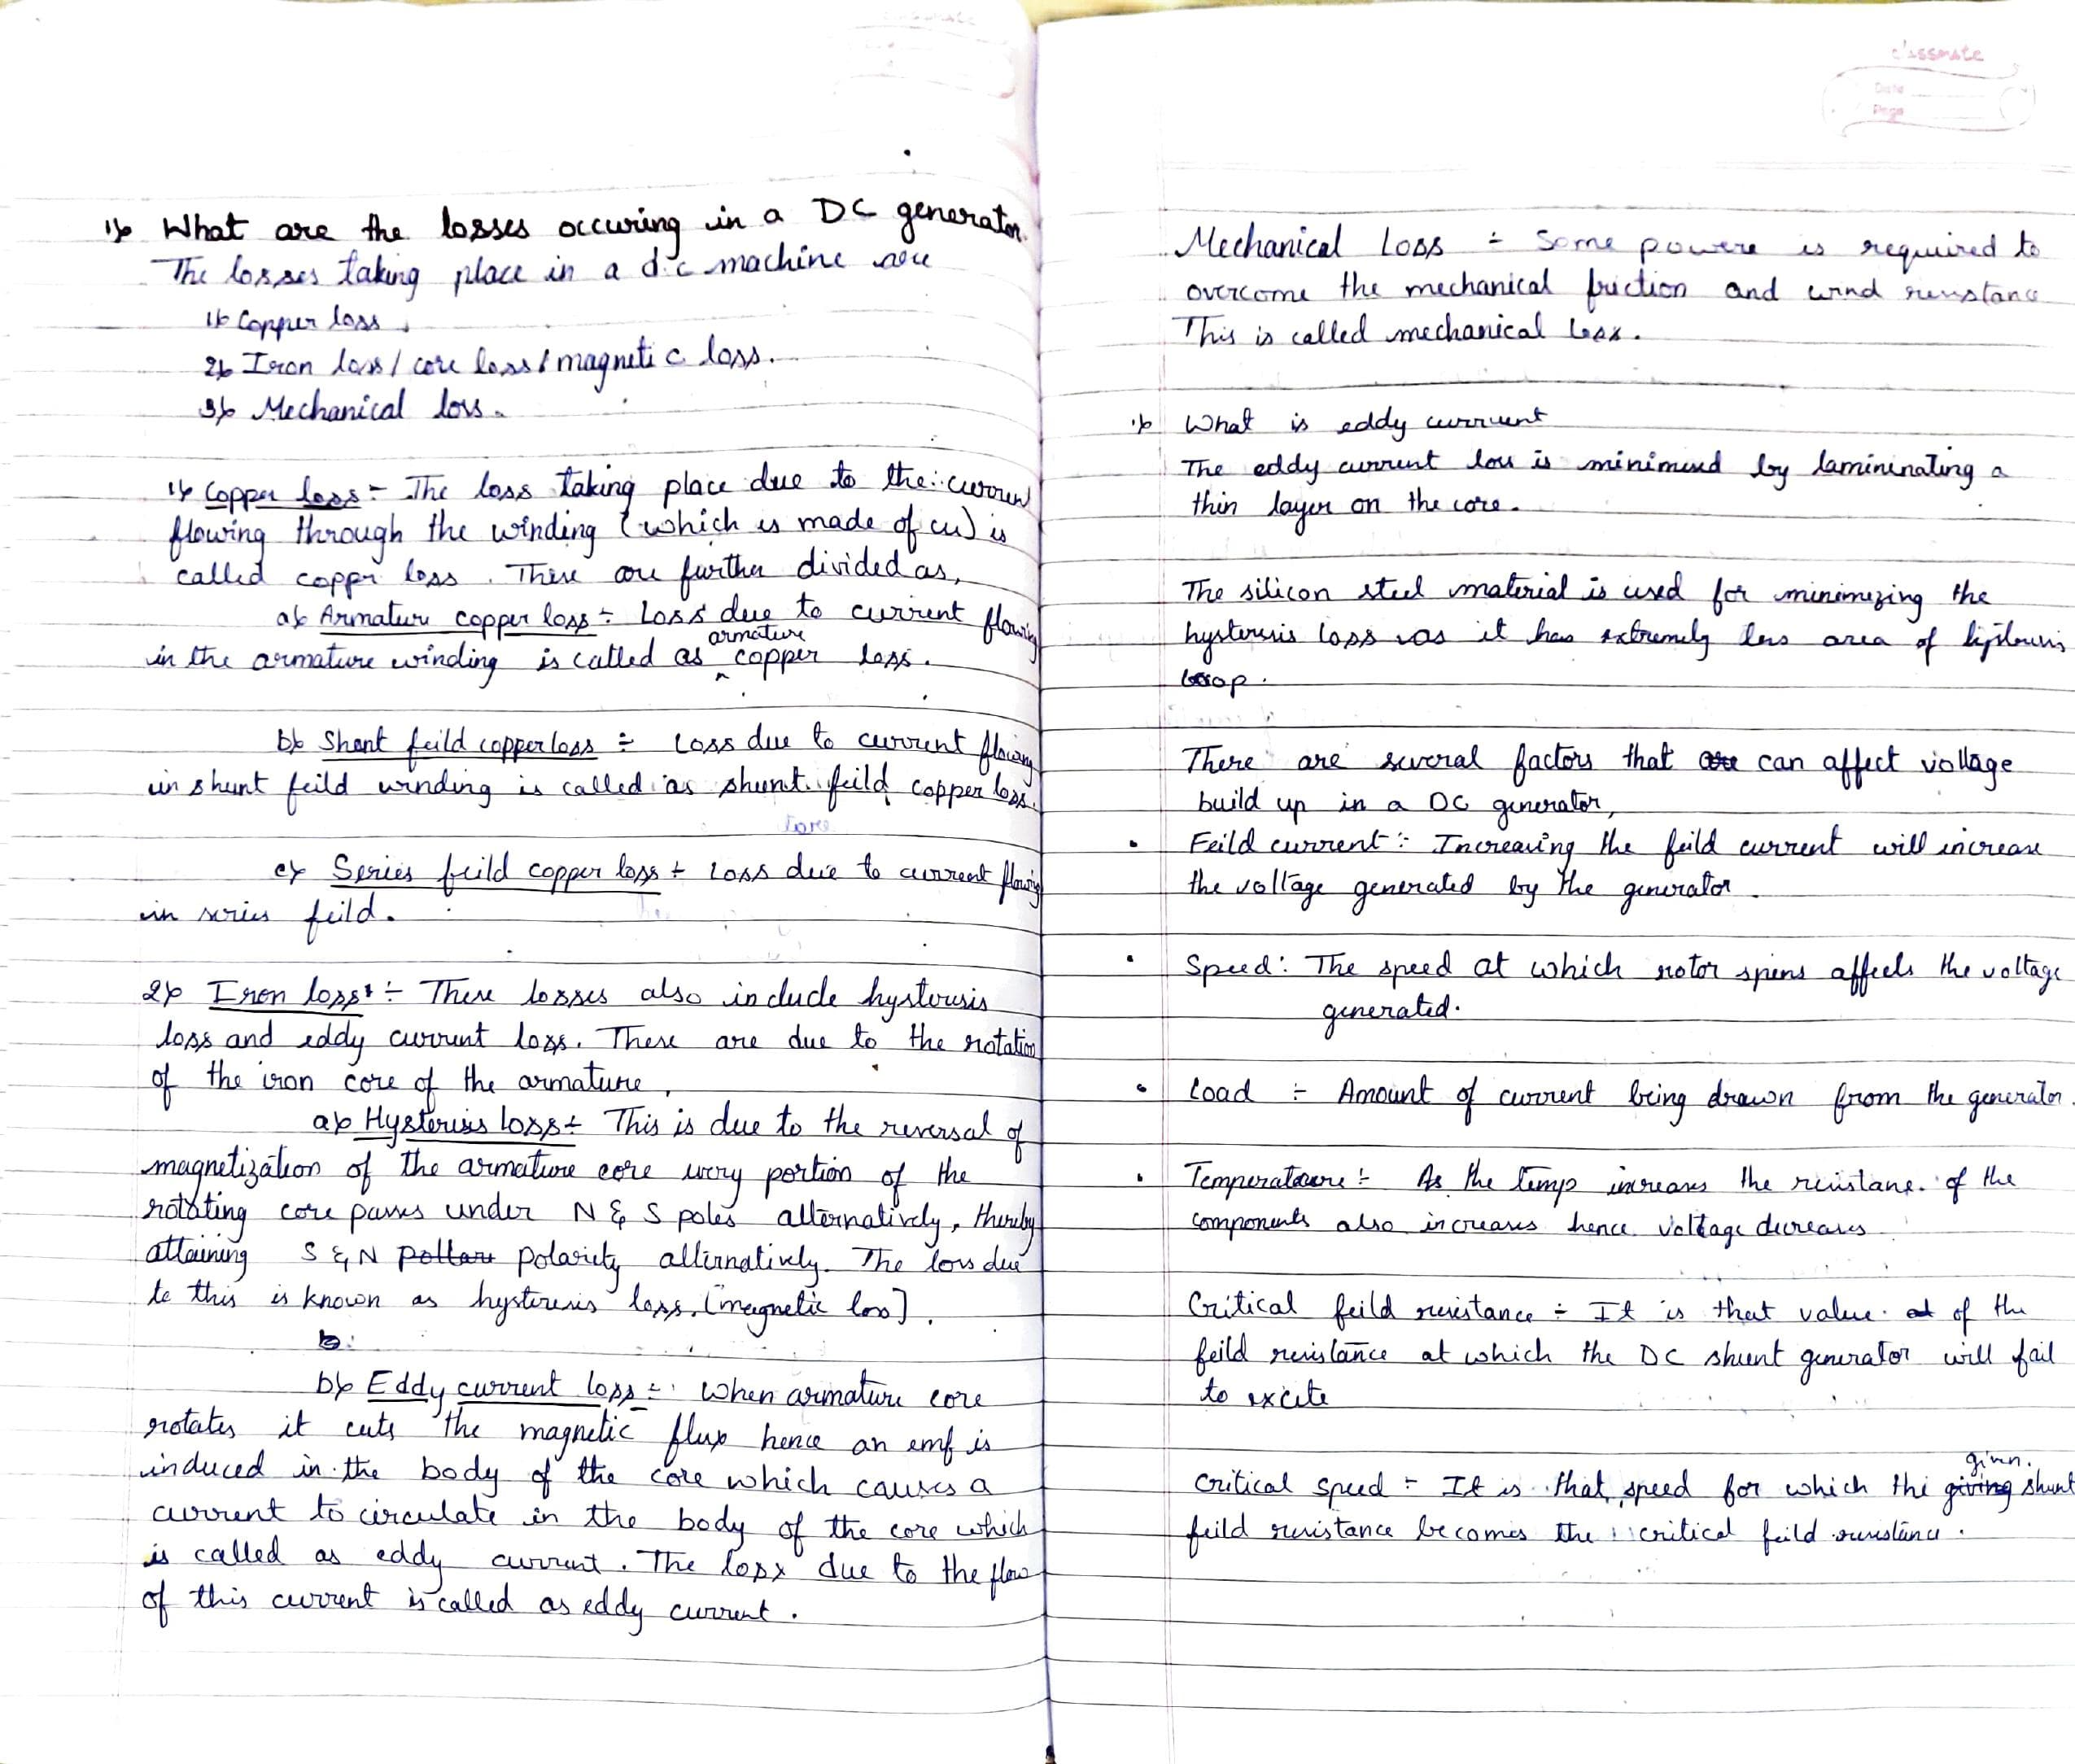 1) What are the losses occuring in a DC generator.
The losses taking place in a d.c machine are
1) Copper loss.
2) Iron loss / core loss / magnetic loss.
3) Mechanical loss.
1) Copper loss :- The loss taking place due to the current
flowing through the winding (which is made of cu) is
called copper loss. These are further divided as,
a) Armature copper loss :- Loss due to current flowing
in the armature winding is called as armature copper loss.
b) Shunt feild copper loss :- Loss due to current flowing
in shunt feild winding is called as shunt feild copper loss.
c) Series feild copper loss :- Loss due to current flowing
in series feild.
2) Iron loss :- These losses also include hysterisis
loss and eddy current loss. These are due to the rotation
of the iron core of the armature.
a) Hysterisis loss :- This is due to the reversal of
magnetization of the armature core every portion of the
rotating core passes under N & S poles alternatively, thereby
attaining S & N polarity alternatively. The loss due
to this is known as hysteresis loss. [magnetic loss].
b) Eddy current loss :- When armature core
rotates it cuts the magnetic flux hence an emf is
induced in the body of the core which causes a
current to circulate in the body of the core which
is called as eddy current. The loss due to the flow
of this current is called as eddy current.
classmate
Date
Page
Mechanical Loss :- Some powere is required to
overcome the mechanical friction and wind
This is called mechanical loss.
1) What is eddy current
The eddy current loss is minimized by lamininating a
thin layer on the core.
The silicon steel material is used for minimizing the
hysterisis loss as it has extremely less area of
loop.
There are several factors that can affect voltage
build up in a DC generator,
• Feild current :- Increasing the feild current will increase
the voltage generated by the generator.
• Speed : The speed at which rotor spins affects the voltage
generated.
• Load :- Amount of current being drawn from the generator.
• Temperature :- As the temp increases the resistance of the
components also increases hence voltage decreases
Critical feild resistance :- It is that value of the
feild resistance at which the DC shunt generator will fail
to excite
Critical speed :- It is that speed for which the given shunt
feild resistance becomes the critical feild resistance.